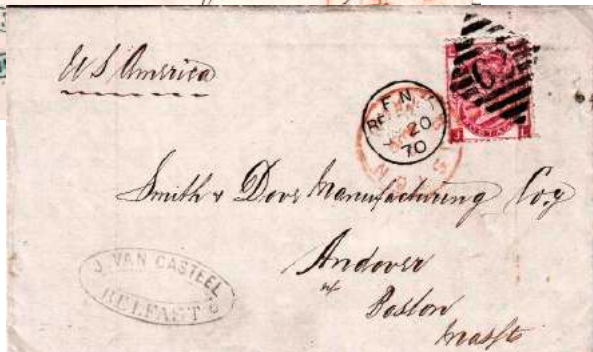 U S America
20
70
62
J L
Smith & Dove Manufacturing Coy
Andover
nr
Boston
Masst
J. VAN CASTEEL
BELFAST